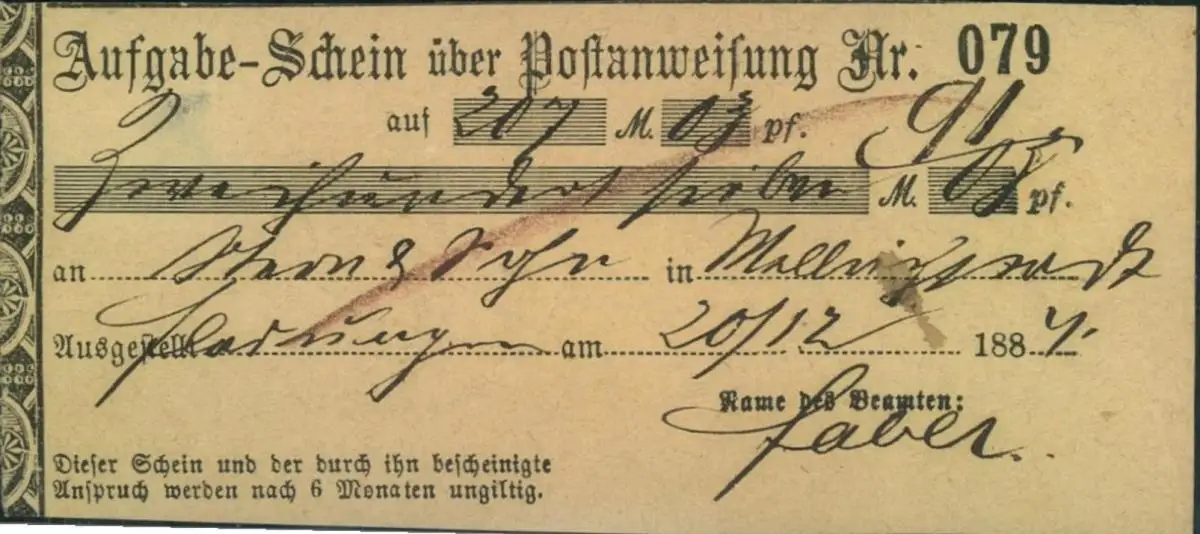 Aufgabe-Schein über Postanweisung Nr. 079
auf 207 M. 03 pf. 91
Zweihundert sieben M. 03 pf.
an Stern & Sohn in Mellrichstadt
Ausgestellt Fladungen am 20/12 1884.
Name des Beamten:
Faber.
Dieser Schein und der durch ihn bescheinigte
Anspruch werden nach 6 Monaten ungiltig.